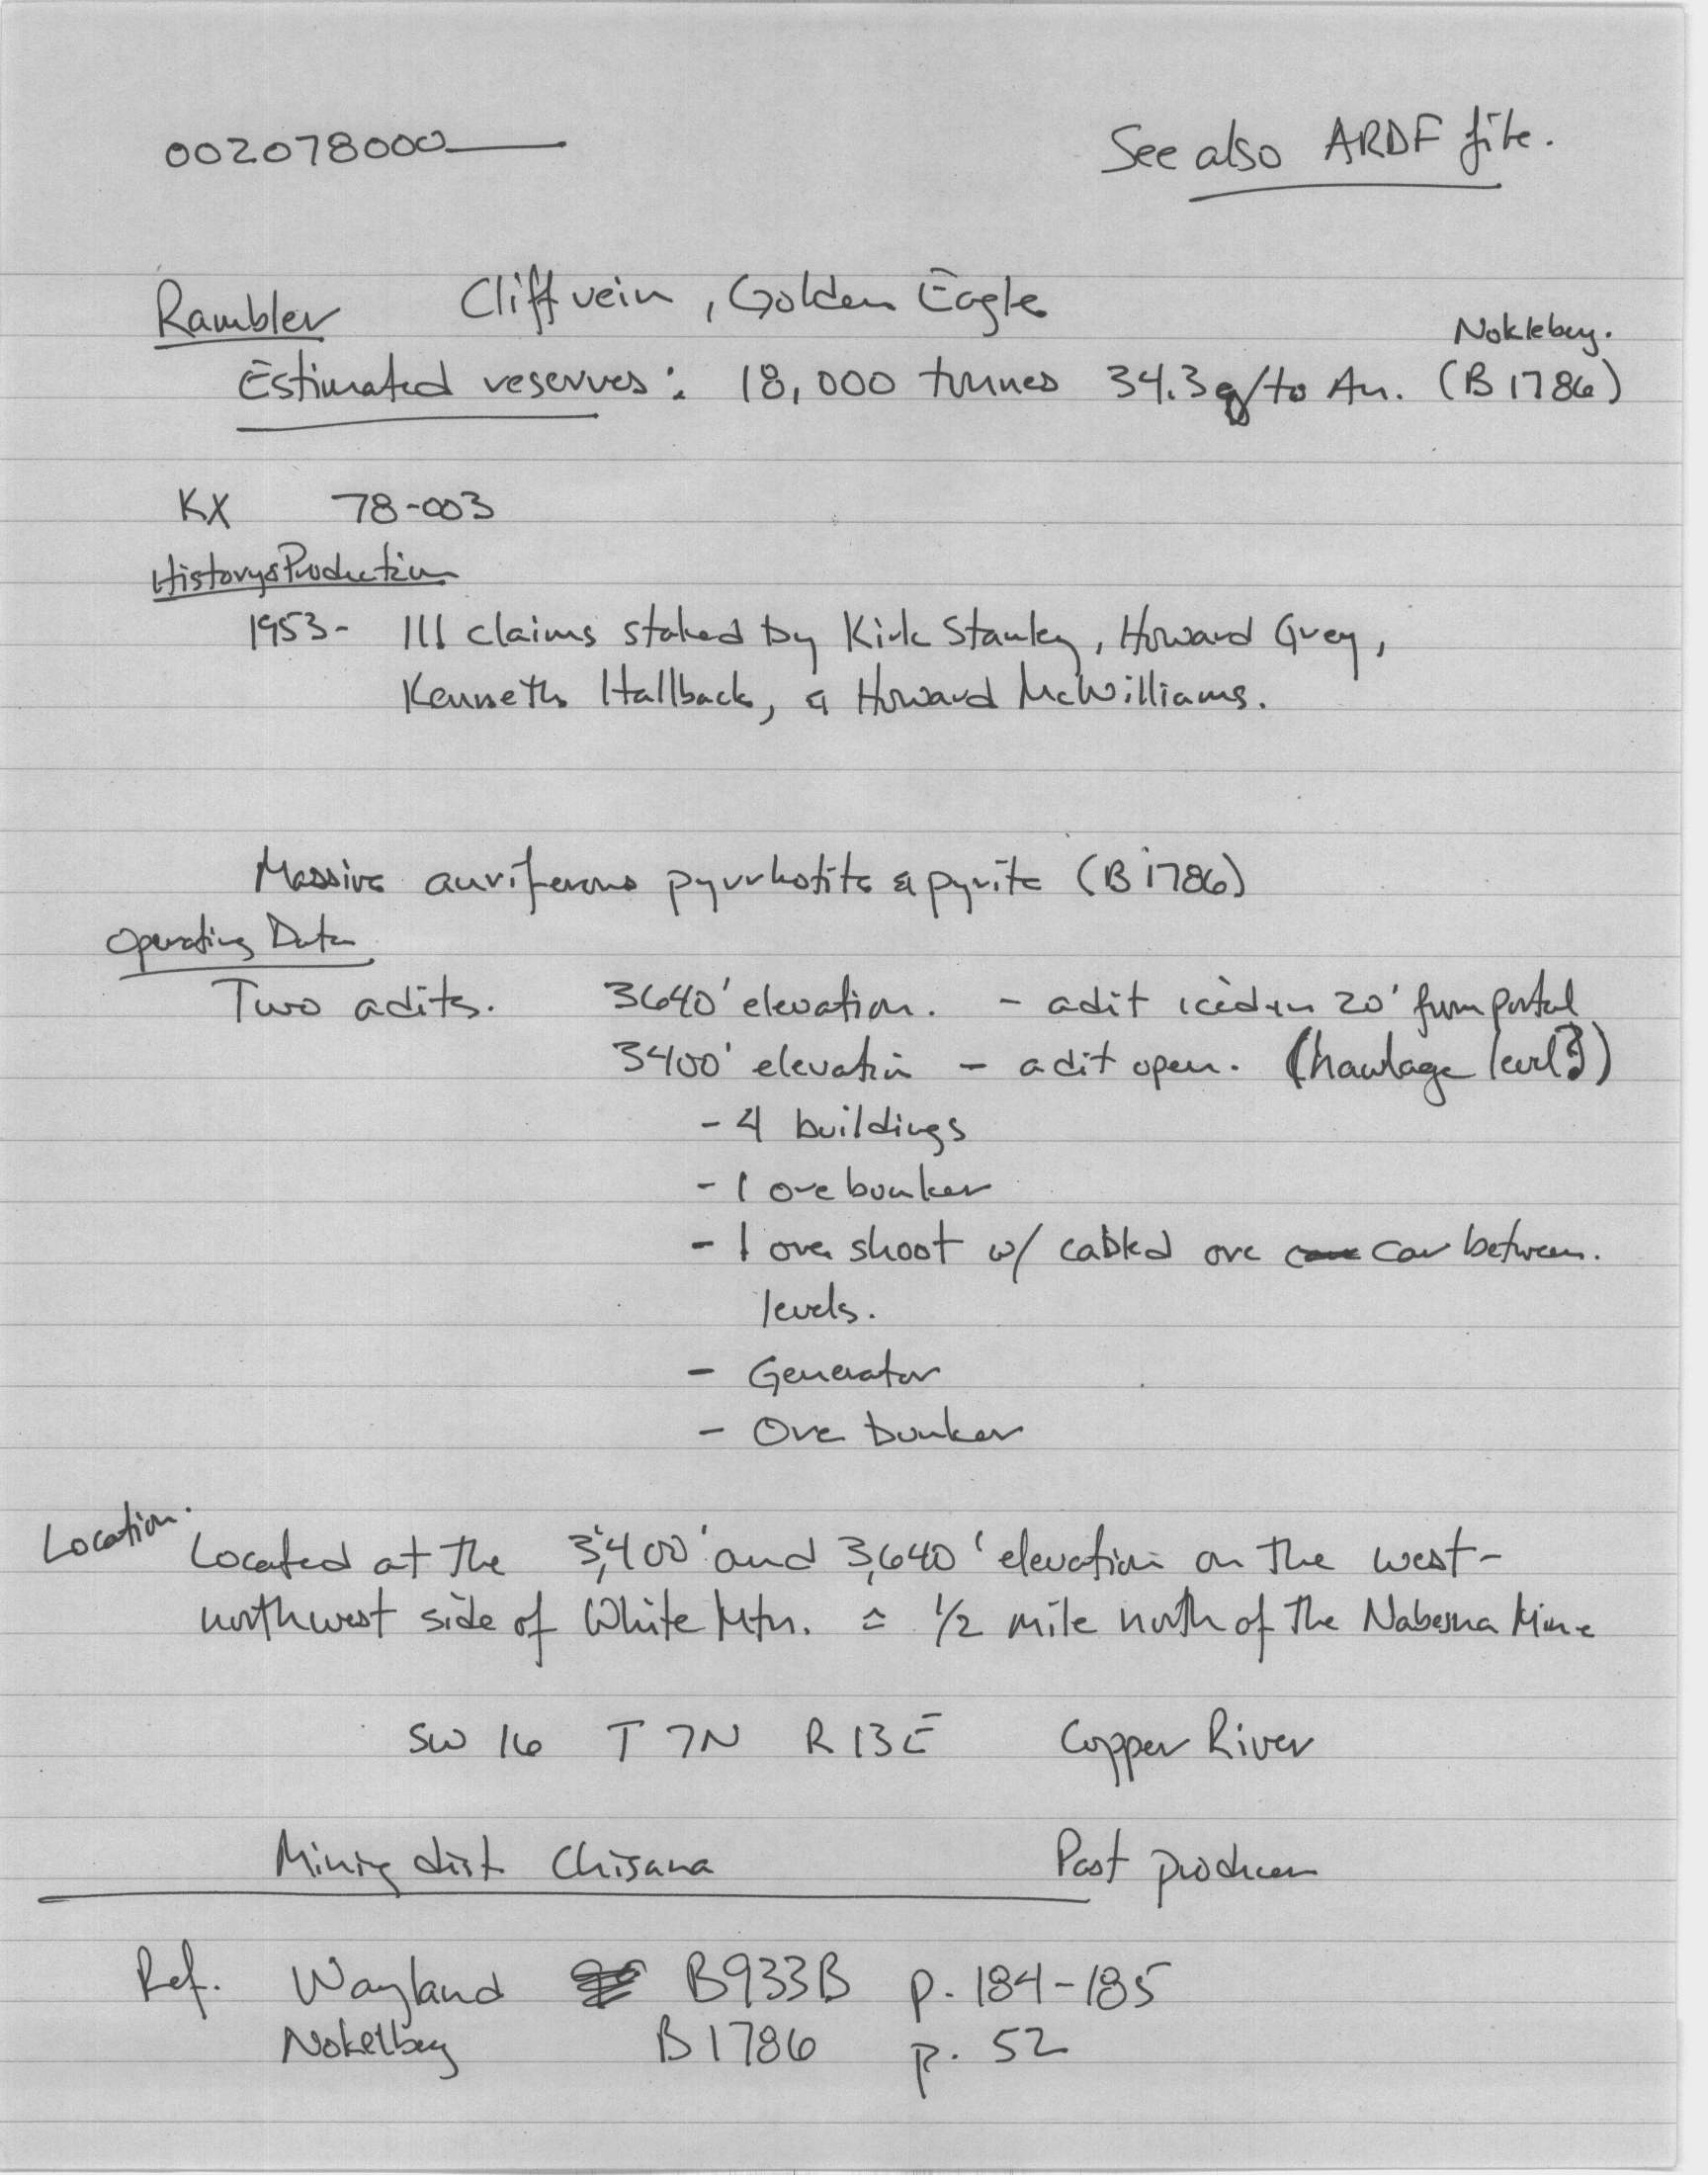 002078000
See also ARDF file.
Rambler Cliff vein, Golden Eagle
Nokleberg.
Estimated reserves: 18,000 tonnes 34.3 g/to Au. (B 1786)
KX 78-003
History & Production
1953- 111 claims staked by Kirk Stanley, Howard Grey,
Kenneth Hallback, & Howard McWilliams.
Massive auriferous pyrrhotite & pyrite (B 1786)
Operating Data
Two adits. 3640' elevation. - adit iced in 20' from portal
3400' elevation - adit open. (haulage level?)
- 4 buildings
- 1 ore bunker
- 1 ore shoot w/ cabled ore car between.
levels.
- Generator
- Ore bunker
Location.
Located at the 3,400' and 3,640' elevation on the west-
northwest side of White Mtn. ≈ 1/2 mile north of the Nabesna Mine
SW 16 T 7N R 13E Copper River
Mining dist Chisana Past producer
Ref. Wayland B933B p. 184-185
Nokelberg B 1786 p. 52